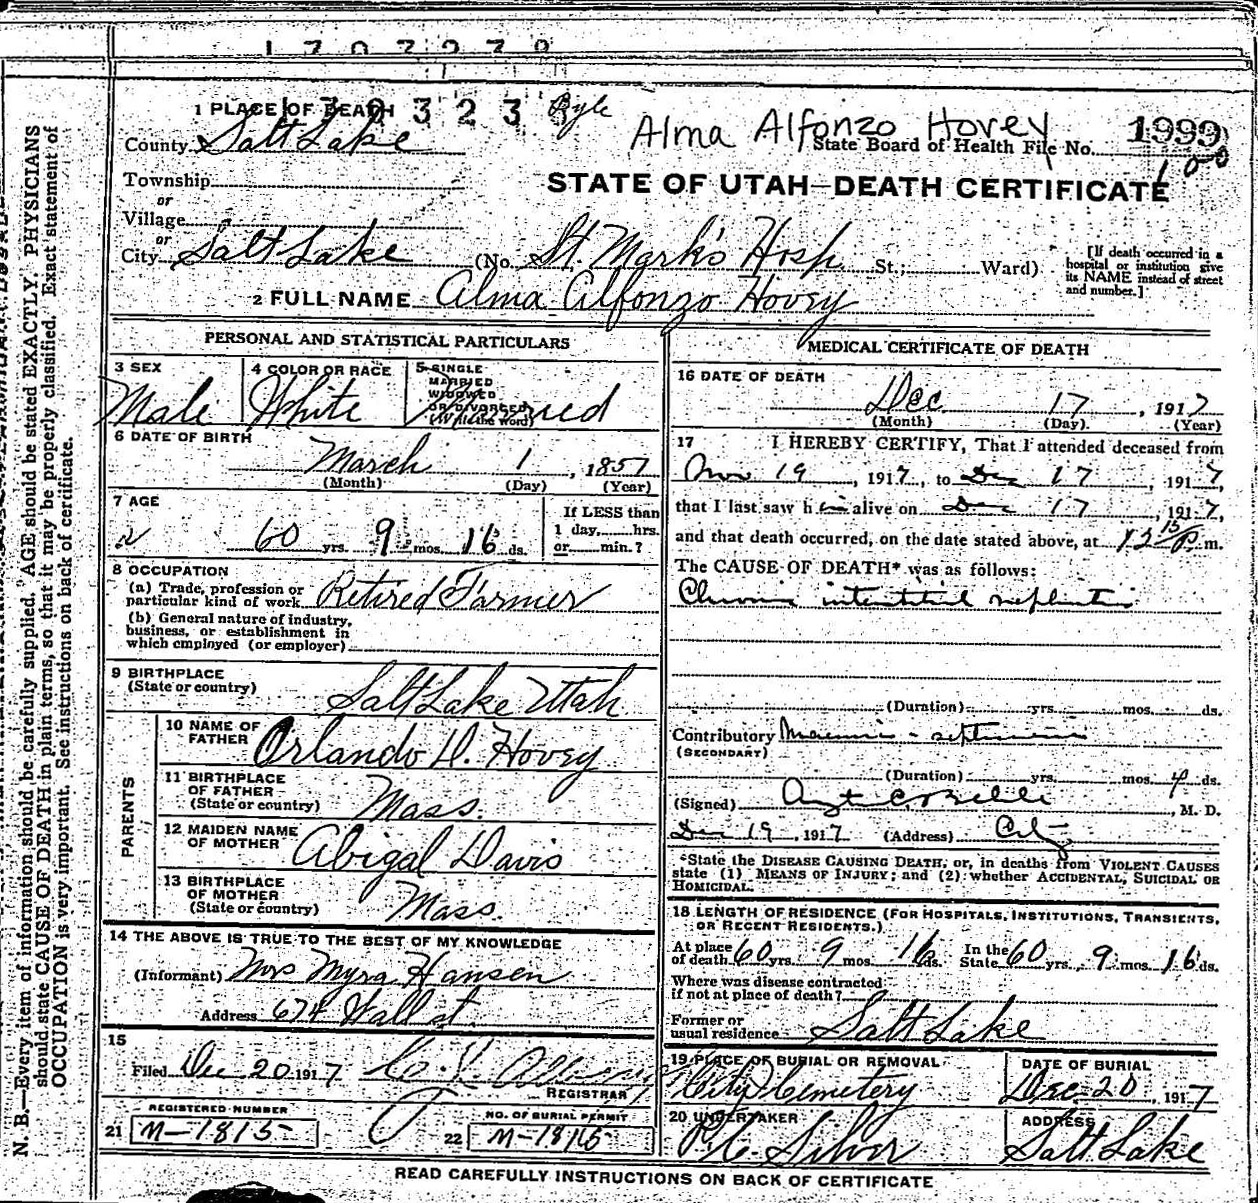 1 PLACE OF DEATH
County Salt Lake
Township
or
Village
or
City Salt Lake (No. St. Mark's Hosp St.; Ward)
[If death occurred in a hospital or institution give its NAME instead of street and number.]
Alma Alfonzo Hovey
State Board of Health File No. 1999
STATE OF UTAH—DEATH CERTIFICATE
2 FULL NAME Alma Alfonzo Hovey
PERSONAL AND STATISTICAL PARTICULARS
3 SEX Male
4 COLOR OR RACE White
5 SINGLE
MARRIED
WIDOWED
OR DIVORCED
(Write the word)
Married
6 DATE OF BIRTH
March 1, 1857
(Month) (Day) (Year)
7 AGE
60 yrs. 9 mos. 16 ds.
If LESS than
1 day, hrs.
or min.?
8 OCCUPATION
(a) Trade, profession or
particular kind of work Retired Farmer
(b) General nature of industry,
business, or establishment in
which employed (or employer)
9 BIRTHPLACE
(State or country) Salt Lake Utah
PARENTS
10 NAME OF
FATHER Orlando D. Hovey
11 BIRTHPLACE
OF FATHER
(State or country) Mass.
12 MAIDEN NAME
OF MOTHER Abigal Davis
13 BIRTHPLACE
OF MOTHER
(State or country) Mass.
14 THE ABOVE IS TRUE TO THE BEST OF MY KNOWLEDGE
(Informant) Mrs Myra Hansen
Address 674 Wall st.
15
Filed Dec 20 1917
REGISTRAR
REGISTERED NUMBER
21 M-1815
NO. OF BURIAL PERMIT
22 M-1815
MEDICAL CERTIFICATE OF DEATH
16 DATE OF DEATH
Dec 17, 1917
(Month) (Day) (Year)
17 I HEREBY CERTIFY, That I attended deceased from
Nov 19, 1917, to Dec 17, 1917,
that I last saw him alive on Dec 17, 1917,
and that death occurred, on the date stated above, at 12 15 P. m.
The CAUSE OF DEATH* was as follows:
Chronic interstitial nephritis
(Duration) yrs. mos. ds.
Contributory
(SECONDARY)
(Duration) yrs. mos. 4 ds.
(Signed) M. D.
Dec 19, 1917 (Address) City
*State the DISEASE CAUSING DEATH, or, in deaths from VIOLENT CAUSES
state (1) MEANS OF INJURY; and (2) whether ACCIDENTAL, SUICIDAL OR
HOMICIDAL.
18 LENGTH OF RESIDENCE (FOR HOSPITALS, INSTITUTIONS, TRANSIENTS,
OR RECENT RESIDENTS.)
At place
of death 60 yrs. 9 mos. 16 ds. In the State 60 yrs. 9 mos. 16 ds.
Where was disease contracted
if not at place of death?
Former or
usual residence Salt Lake
19 PLACE OF BURIAL OR REMOVAL
City Cemetery
DATE OF BURIAL
Dec 20, 1917
20 UNDERTAKER
Silver
ADDRESS
Salt Lake
READ CAREFULLY INSTRUCTIONS ON BACK OF CERTIFICATE
N. B.—Every item of information should be carefully supplied. AGE should be stated EXACTLY. PHYSICIANS
should state CAUSE OF DEATH in plain terms, so that it may be properly classified. Exact statement of
OCCUPATION is very important. See instructions on back of certificate.